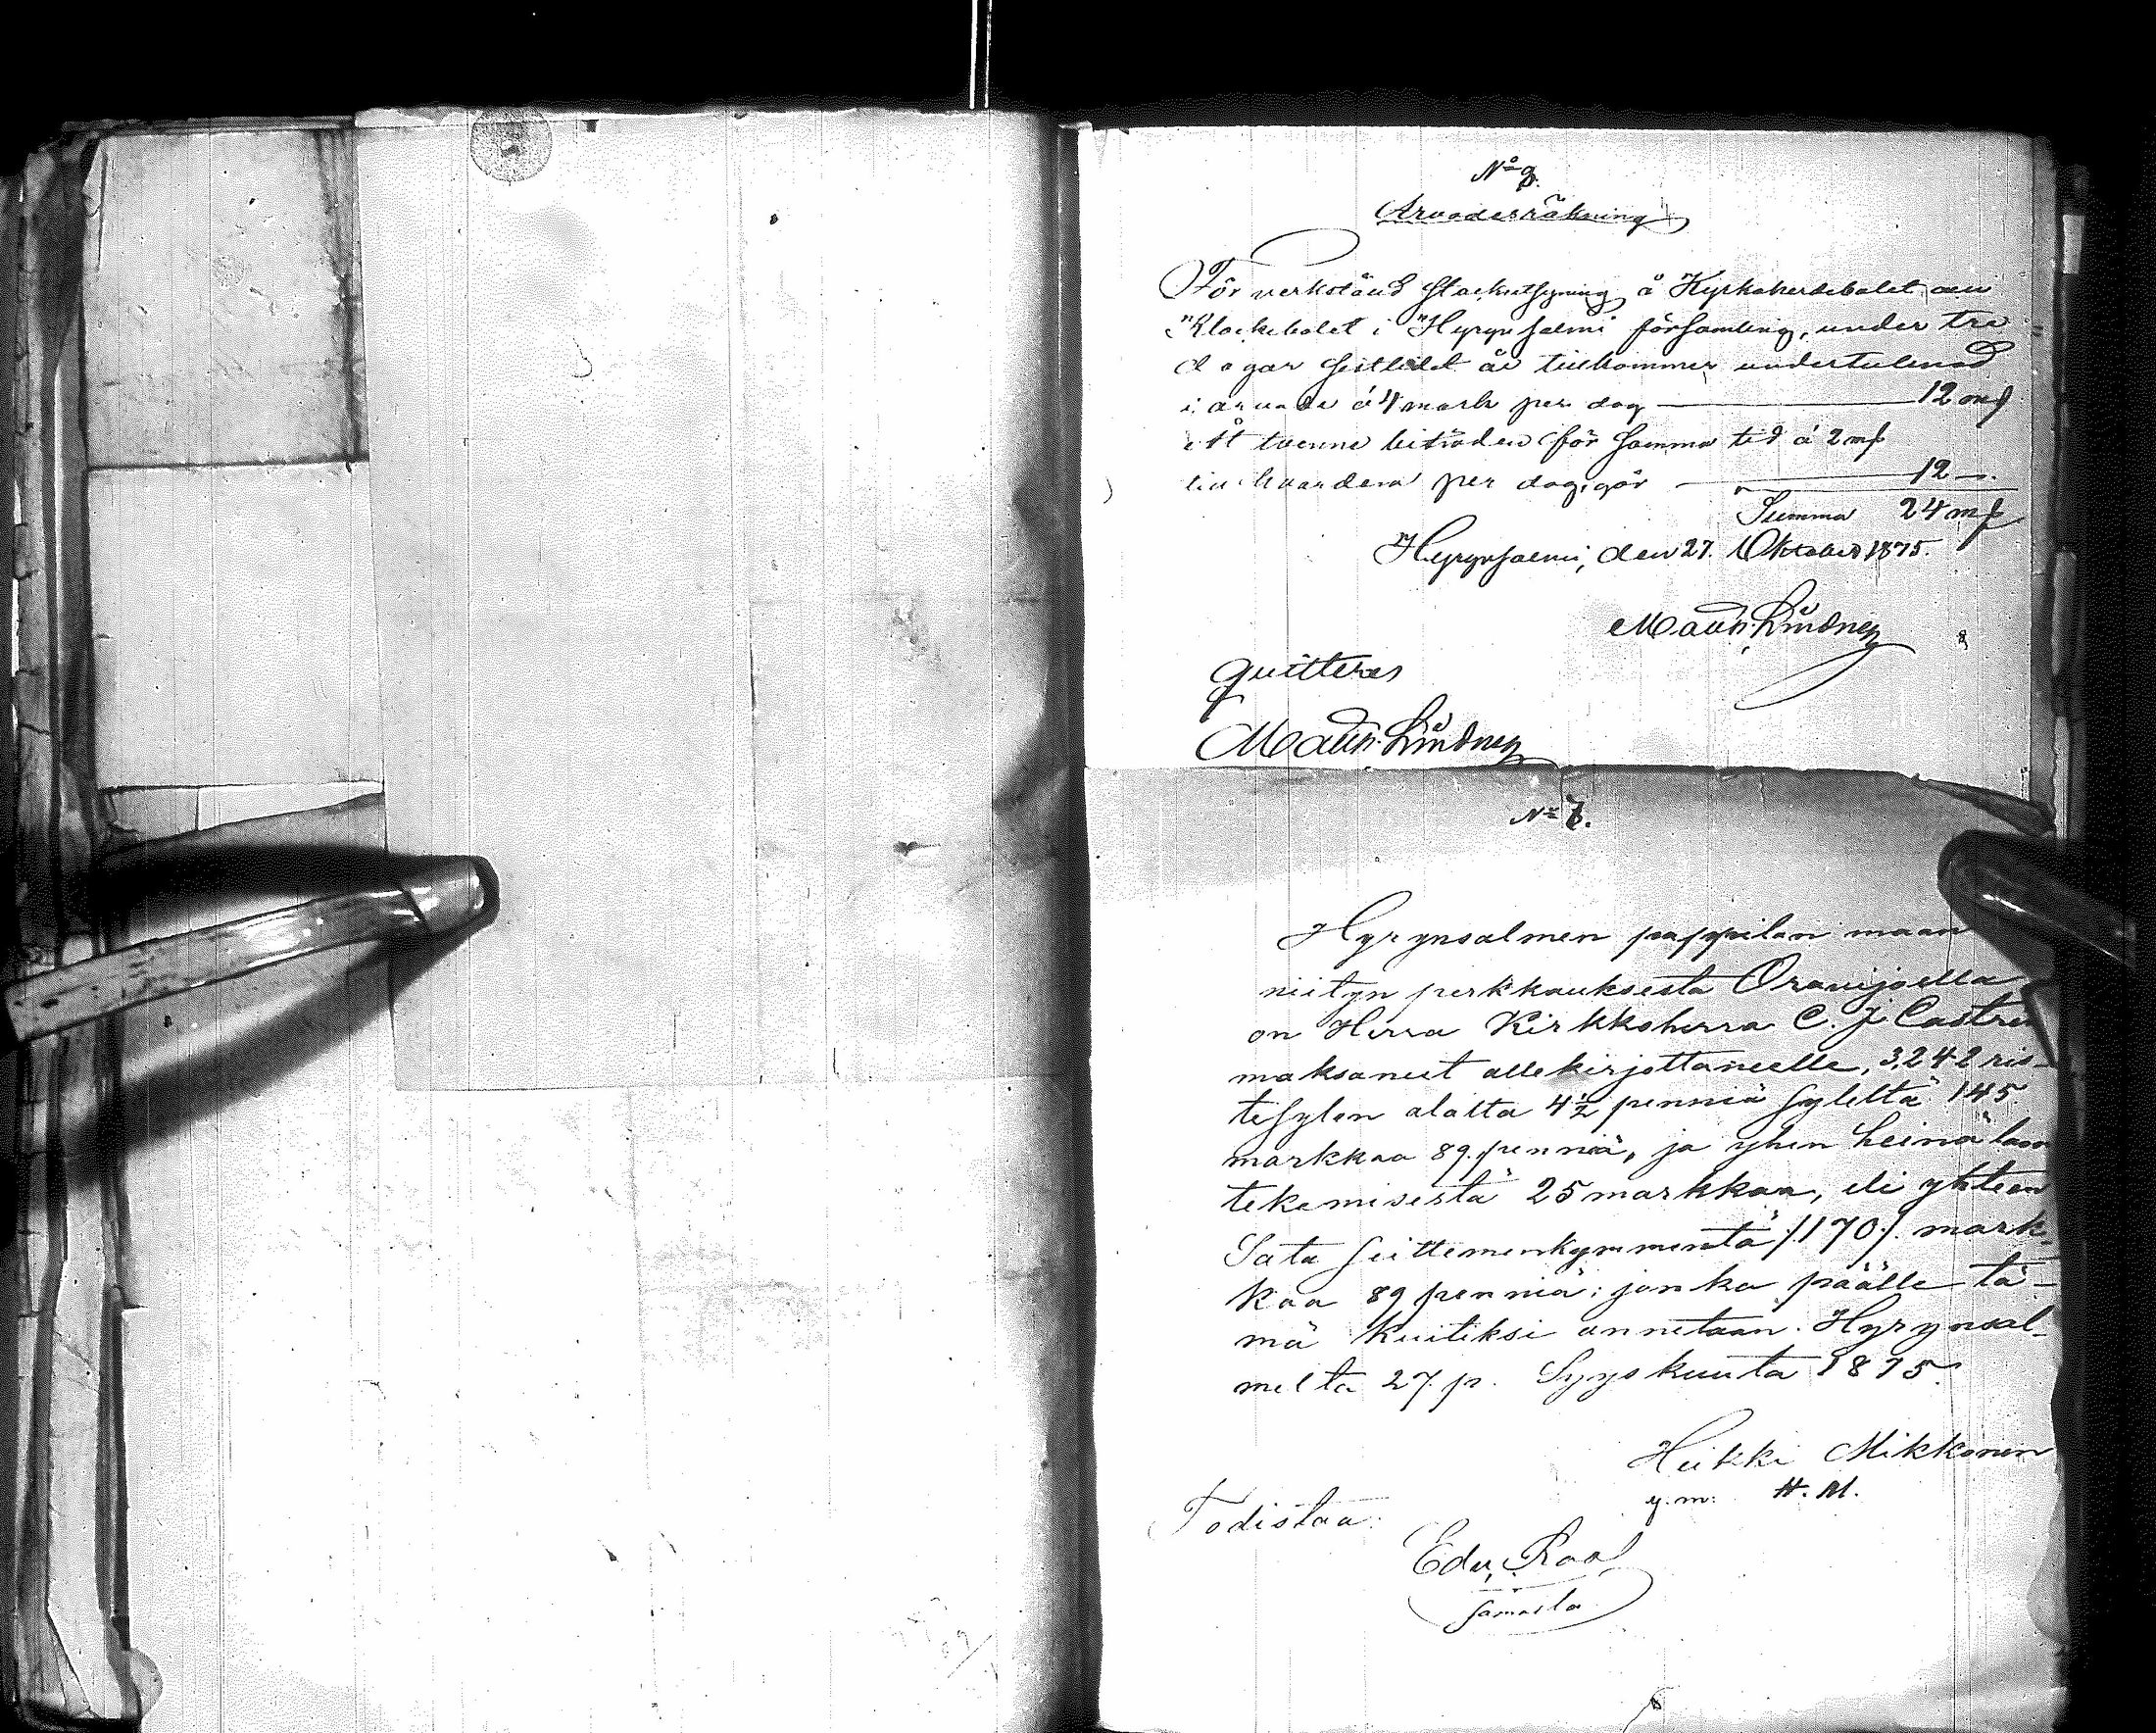 No 9.
Arvodesräkning
För verkstäld stockutsyning å Kyrkoherdebolet och
Klockebolet i Hyrynsalmi församling, under tre
dagar sistlidet år tillkommer undertecknad
i arvode à 4 mark per dag 12 mk
åt tvenne biträden för samma tid à 2 mk
till hvardera per dag, gör 12 —.
Summa 24 mk
Hyrynsalmi, den 27. Oktober 1875.
Maur. Lindner
quitteras
Maur. Lindner
No 7.
Hyrynsalmen pappilan maan
niityn perkkauksesta Oravijoella
on Herra Kirkkoherra C. J. Castren
maksaneet allekirjottaneelle, 3,242 ris-
tisylen alalta 4½ penniä syleltä 145
markkaa 89 penniä, ja yhen heinä
tekemisestä 25 markkaa, eli yhteen
Sata seittemenkymmentä /:170:/ mark-
kaa 89 penniä; jonka päälle tä-
mä kuitiksi annetaan. Hyrynsal-
melta 27 p. Syyskuuta 1875.
Heikki Mikkonen
y. m. H. M.
Todistaa:
Edv.